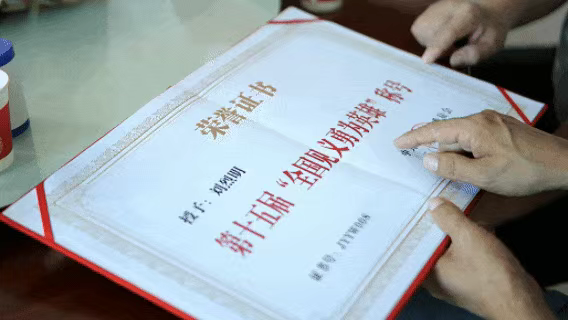 荣誉证书
授予：刘烈明
第十五届“全国见义勇为英雄”称号